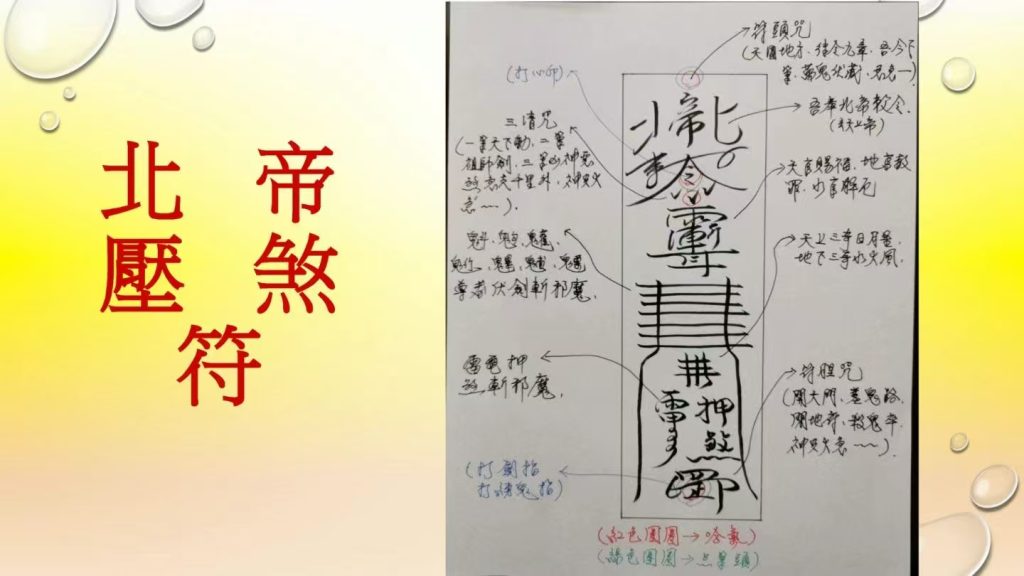 北 帝
壓 煞
符
符頭咒
(天圓地方、律令九章、吾今下
筆、萬鬼伏藏、急急一)
(打心印)
吾奉北帝敕令
三清咒
(一筆天下動、二筆
祖師劍、三筆凶神惡
煞去千里外、神兵火
急~~).
天官賜福、地官赦
罪、水官解厄
天上三奇日月星、
地下三奇水火風、
尊者伏劍斬邪魔.
雷電押
煞斬邪魔、
符膽咒
(開大門、塞鬼路、
開地府、殺鬼卒、
神兵火急~~).
(打劍指
北帝
奉令
井
雷押
煞
罡印
(紅色圈圈→哈氣)
(綠色圈圈→点筆頭)